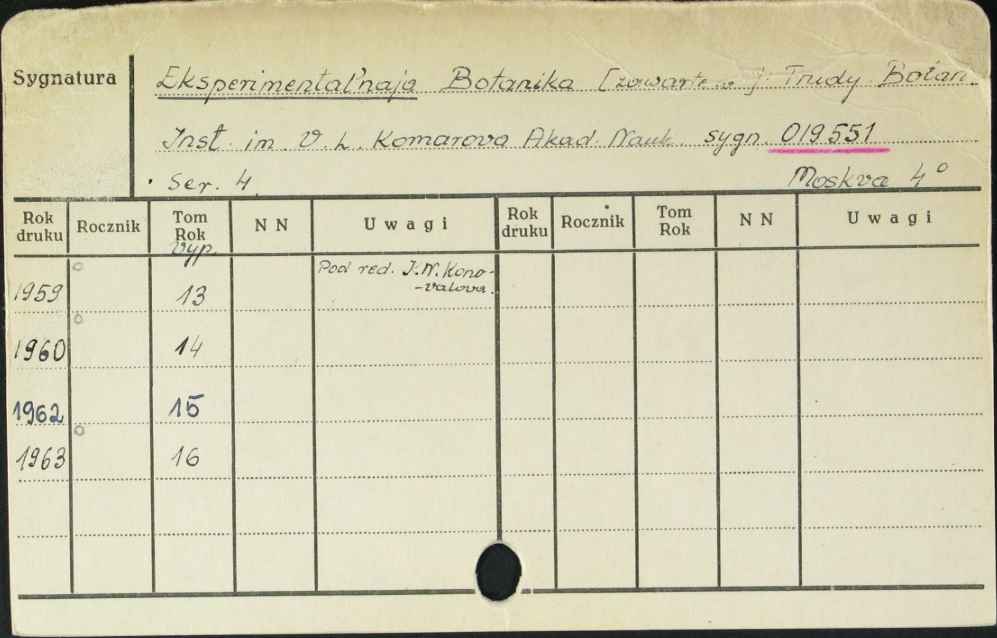 Sygnatura
Eksperimental'naja Botanika [zawarte w] Trudy Botan.
Inst. im. V. L. Komarova Akad. Nauk. sygn. 019551
Ser. 4. Moskva 4°
Rok druku Rocznik Tom Rok NN Uwagi Rok druku Rocznik Tom Rok NN Uwagi
Vyp.
Pod red. I. N. Kono-
1959 13 -valova.
1960 14
1962 15
1963 16